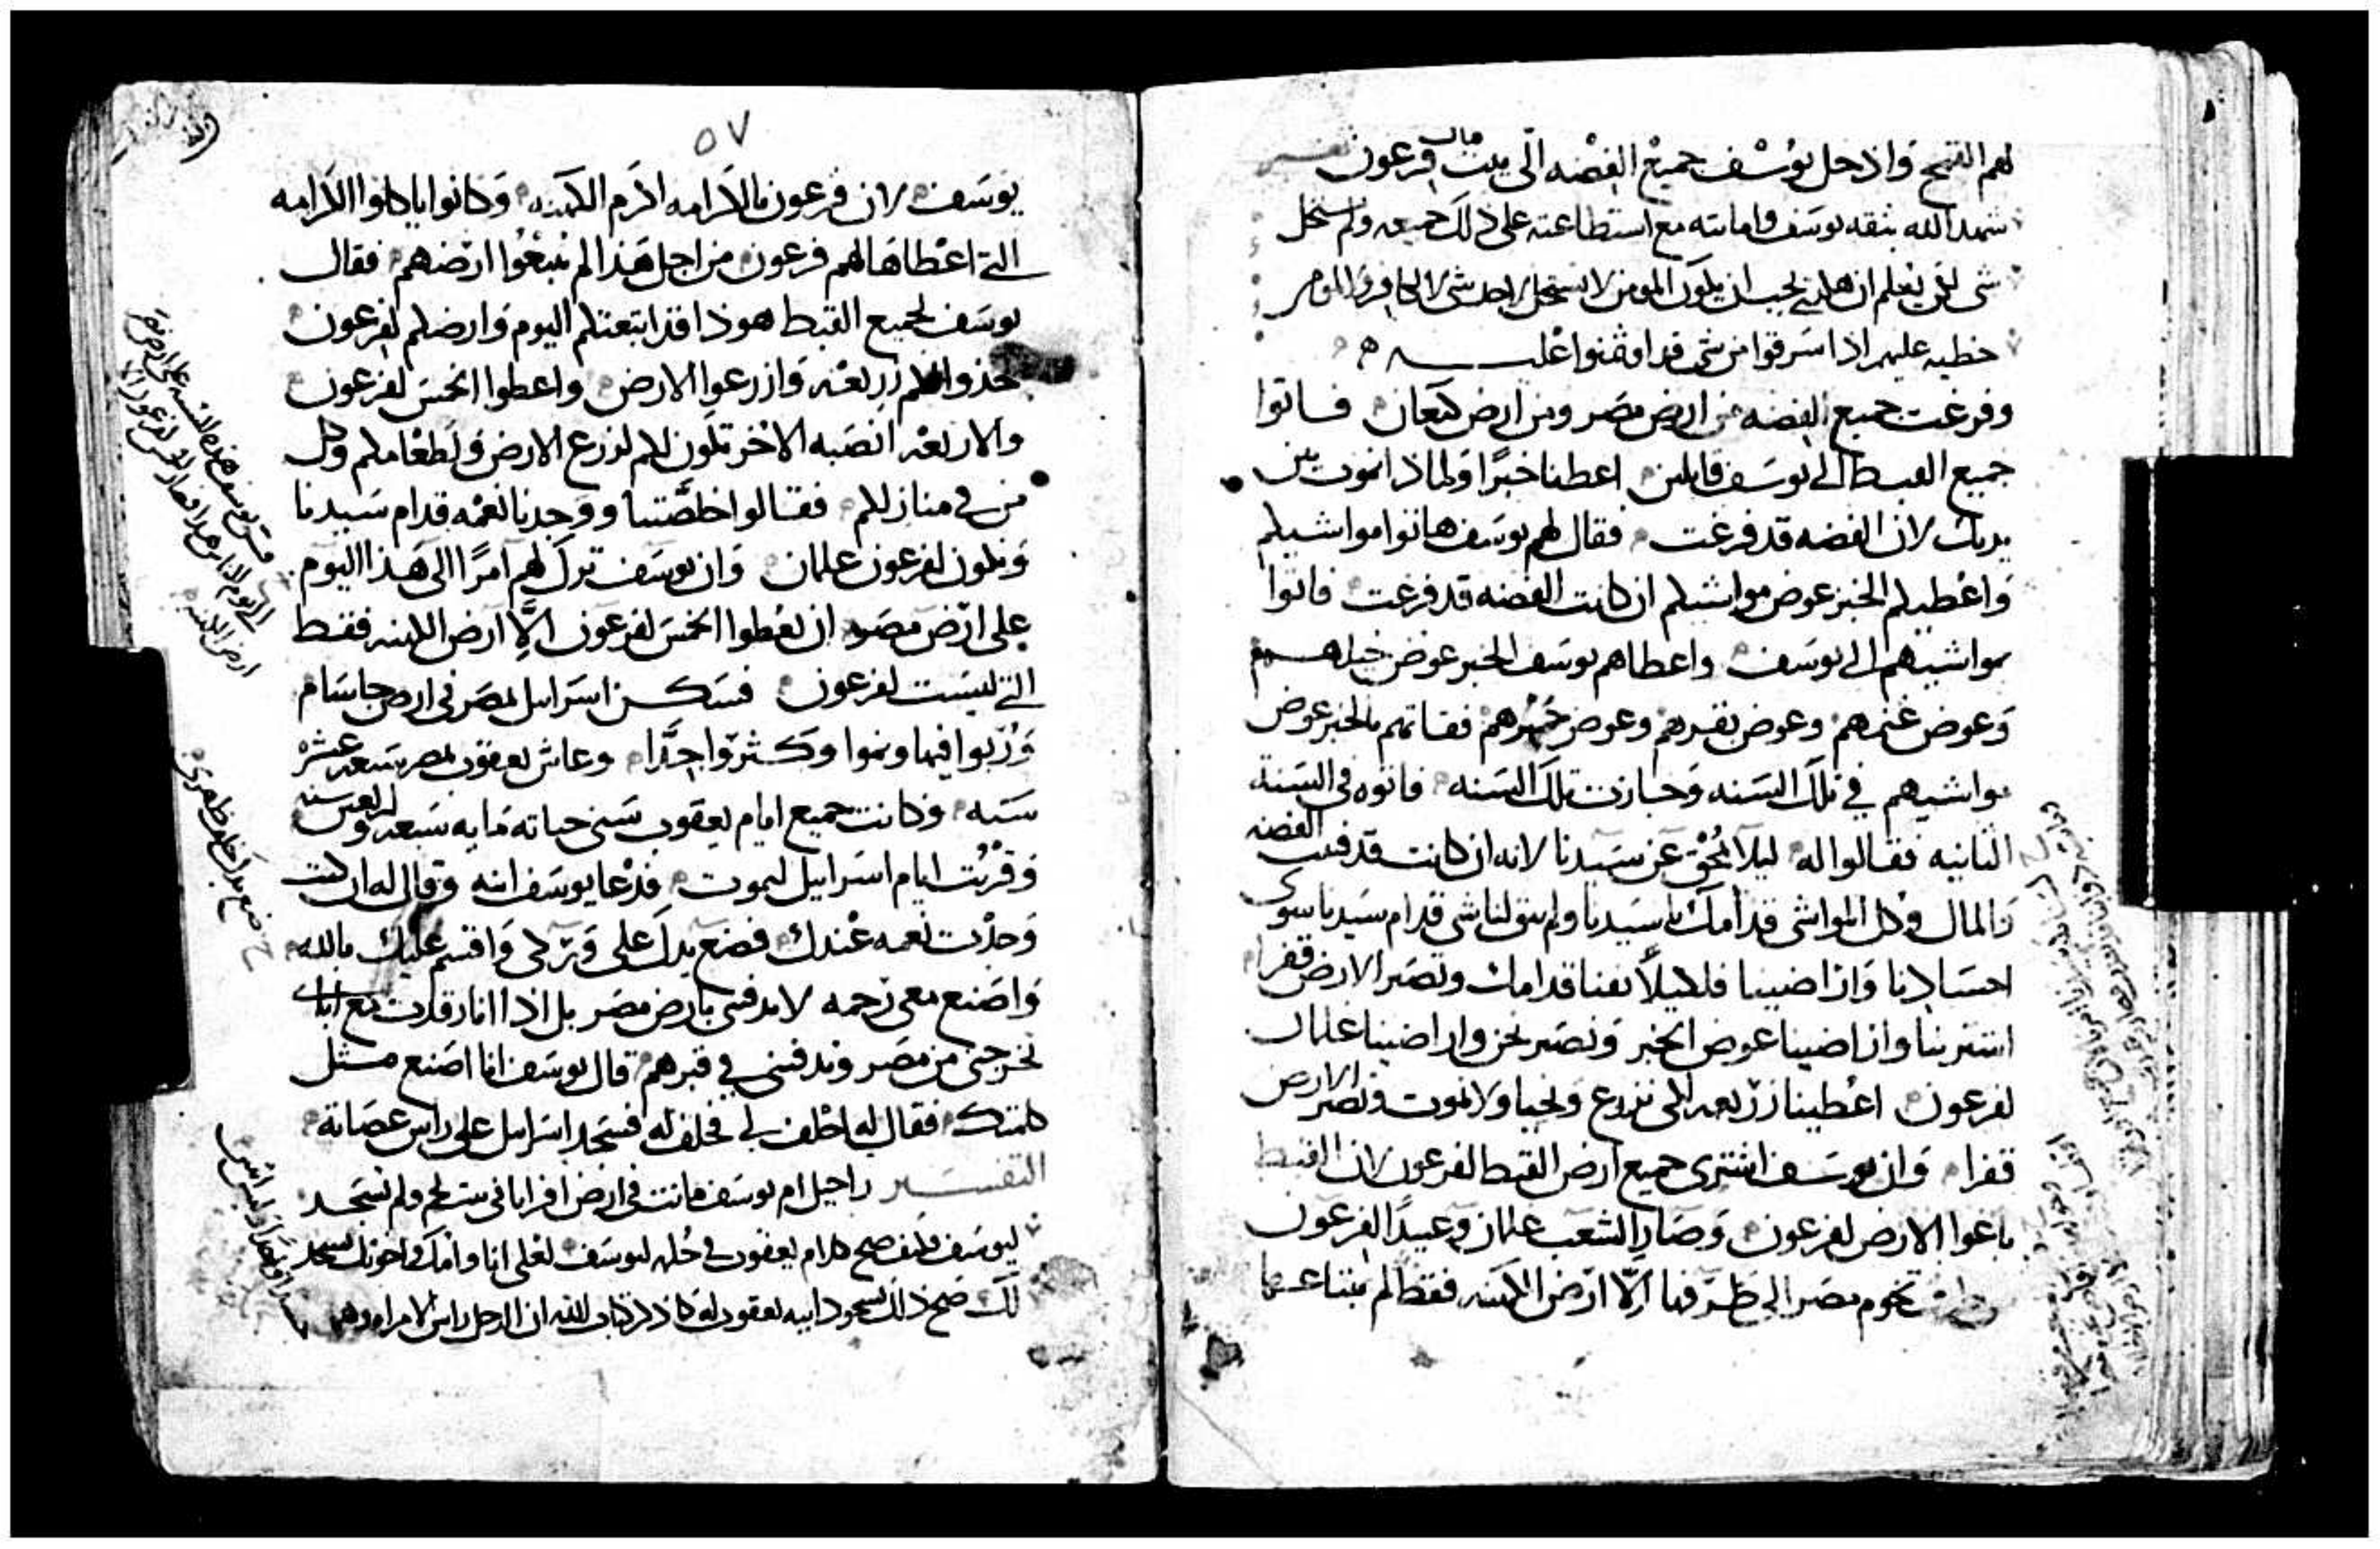 لهم القمح وادخل يوسف جميع الفضه الى بيت مال فرعون تفسير
شهد الله بثقه يوسف وامانته مع استطاعته على ذلك جميعه ولم يستحل
شى لكى يعلم ان هكذى يجب ان يكون المومن لا يستحل لاحد شى لا الكافر ولا المومن
خطيه عليهم اذا سرقوا من شى قد اوتمنوا عليه
وفرغت جميع الفضه من ارض مصر ومن ارض كنعان فاتوا
جميع القبط الى يوسف قايلين اعطنا خبزًا ولماذا نموت بين
يديك لان الفضه قد فرغت فقال لهم يوسف هاتوا مواشيكم
واعطيكم الخبز عوض مواشيكم ان كانت الفضه قد فرغت فاتوا
بمواشيهم الى يوسف واعطاهم يوسف الخبز عوض خيلهم
وعوض غنمهم وعوض بقرهم وعوض حميرهم فقاتهم بالخبز عوض
مواشيهم في تلك السنه وجازت تلك السنه فاتوه في السنه
الثانيه فقالوا له ليلا نمحق عن سيدنا لانه ان كانت قد فنيت الفضه
والمال وكل المواشى قدامك يا سيدنا ولم يبق لنا شى قدام سيدنا سوى
اجسادنا واراضينا فلكيلا نفنا قدامك وتصير الارض قفرا
اشترينا واراضينا عوض الخبز ونصير نحن واراضينا غلمان
لفرعون اعطينا زريعه لكى نزرع ونحيا ولا نموت وتصير الارض
قفرا وان يوسف اشترى جميع ارض القبط لفرعون لان القبط
باعوا الارض لفرعون وصار الشعب غلمان وعبيدًا لفرعون
تخوم مصر الى طرفها الّا ارض الكهنه فقط لم يبتاعها
٥٧
يوسف لان فرعون بالكرامه اكرم الكهنه وكانوا ياكلوا الكرامه
التى اعطاها لهم فرعون من اجل هذا لم يبيعوا ارضهم فقال
يوسف لجميع القبط هوذا قد ابتعتكم اليوم وارضكم لفرعون
خذوا لكم زريعه وازرعوا الارض واعطوا الخمس لفرعون
والاربعه انصبه الاخر تكون لكم لزرع الارض ولطعامكم وكل
من في منازلكم فقالوا خلصتنا ووجدنا نعمه قدام سيدنا
ونكون لفرعون غلمان وان يوسف ترك لهم امرًا الى هذا اليوم
على ارض مصر ان يعطوا الخمس لفرعون الّا ارض الكهنه فقط
التى ليست لفرعون فسكن اسراييل بمصر في ارض جاسام
وربوا فيها ونموا وكثروا جدًّا وعاش يعقوب بمصر سبعه عشره
سنه وكانت جميع ايام يعقوب سنى حياته مايه سبعه واربعين سنه
وقربت ايام اسراييل ليموت فدعا يوسف ابنه وقال له ان كنت
وجدت نعمه عندك فضع يدك على وركى واقسم عليك بالله
واصنع معى رحمه لا تدفنى بارض مصر بل اذا انا رقدت مع اباى
تخرجنى من مصر وتدفننى في قبرهم قال يوسف انا اصنع مثل
كلمتك فقال له احلف لى فحلف له فسجد اسراييل على راس عصاته
التفسير راحيل ام يوسف ماتت في ارض افراتا في بيت لحم ولم تسجد
ليوسف فكيف صح كلام يعقوب في حلم يوسف لعلى انا وامك واخوتك نسجد
لك صح ذلك بسجود ابيه يعقوب له كما ذكر كتاب الله ان الرجل راس الامراه وهى